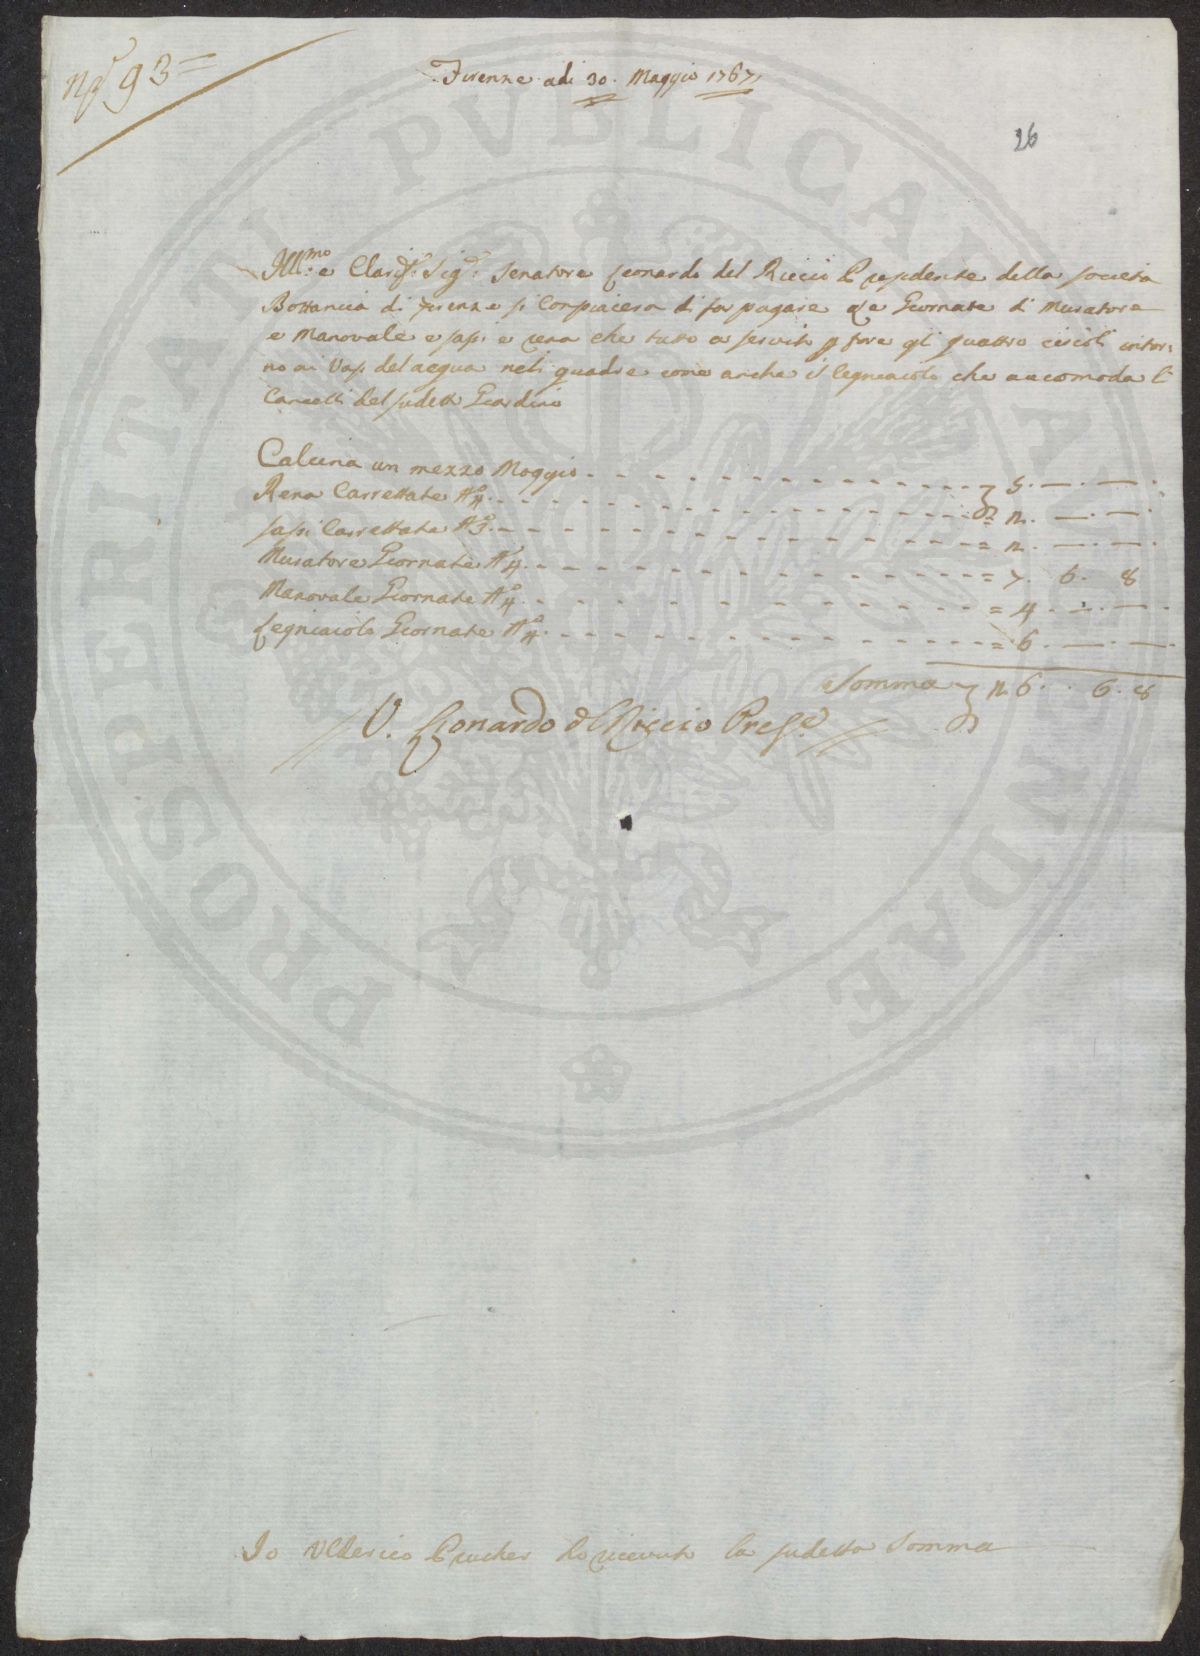 N.º 93=
Firenze adi 30. Maggio 1767.
26
Ill.mo e Clar.º Sig.r Senatore Leonardo del Riccio Presidente della Società
Bottanica di Firenze si Conpiacera di far pagare Giornate di Muratore
e Manovale e sassi e rena che tutto a servito p fare gli quattro circoli intor=
no ai Vasi del acqua neli quadre come anche il legniaiolo che accomoda li
Cancelli del sudetto Giardino
Calcina un mezzo Moggio - - - 5. — . — .
Rena Carrettate Nº 4. - - - = 2. — . — .
sassi Carrettate Nº 3. - - - = 2. — . — .
Muratore Giornate Nº 4. - - - = 7. 6. 8
Manovale Giornate Nº 4. - - - = 4. — . — .
Legniaiolo Giornate Nº 4. - - - = 6. — . — .
Somma 26. . 6. 8
V. Leonardo del Riccio Pres.e
Io Ulderico Prucher ho ricevuto la sudetta Somma
PROSPERITATI PUBLICAE AUGENDAE